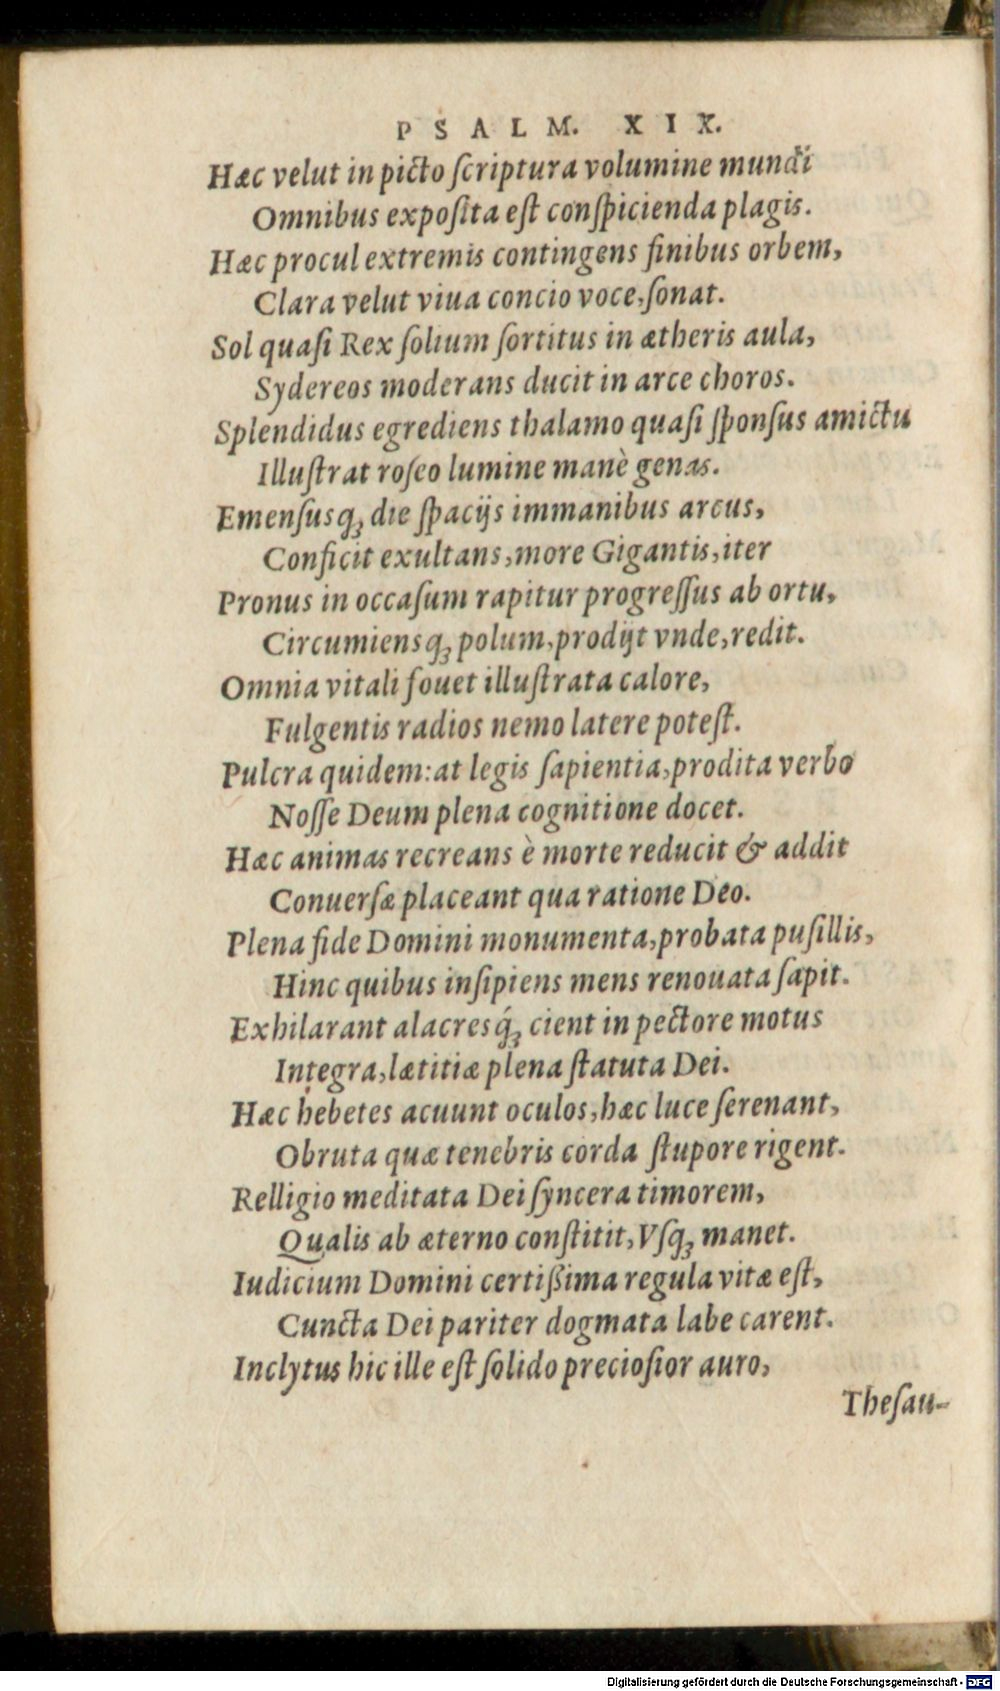 PSALM. XIX.
Hæc velut in picto ſcriptura volumine mundi
Omnibus expoſita eſt conſpicienda plagis.
Hæc procul extremis contingens finibus orbem,
Clara velut viua concio voce, ſonat.
Sol quaſi Rex ſolium ſortitus in ætheris aula,
Sydereos moderans ducit in arce choros.
Splendidus egrediens thalamo quaſi ſponſus amictu
Illuſtrat roſeo lumine manè genas.
Emenſusq; die ſpacijs immanibus arcus,
Conficit exultans, more Gigantis, iter
Pronus in occaſum rapitur progreſſus ab ortu,
Circumiensq; polum, prodijt vnde, redit.
Omnia vitali fouet illuſtrata calore,
Fulgentis radios nemo latere poteſt.
Pulcra quidem: at legis ſapientia, prodita verbo
Noſſe Deum plena cognitione docet.
Hæc animas recreans è morte reducit & addit
Conuerſæ placeant qua ratione Deo.
Plena fide Domini monumenta, probata puſillis,
Hinc quibus inſipiens mens renouata ſapit.
Exhilarant alacresq́; cient in pectore motus
Integra, lætitiæ plena ſtatuta Dei.
Hæc hebetes acuunt oculos, hæc luce ſerenant,
Obruta quæ tenebris corda ſtupore rigent.
Relligio meditata Dei ſyncera timorem,
Qualis ab æterno conſtitit, Vſq; manet.
Iudicium Domini certißima regula vitæ eſt,
Cuncta Dei pariter dogmata labe carent.
Inclytus hic ille eſt ſolido precioſior auro,
Theſau-
Digitalisierung gefördert durch die Deutsche Forschungsgemeinschaft - DFG